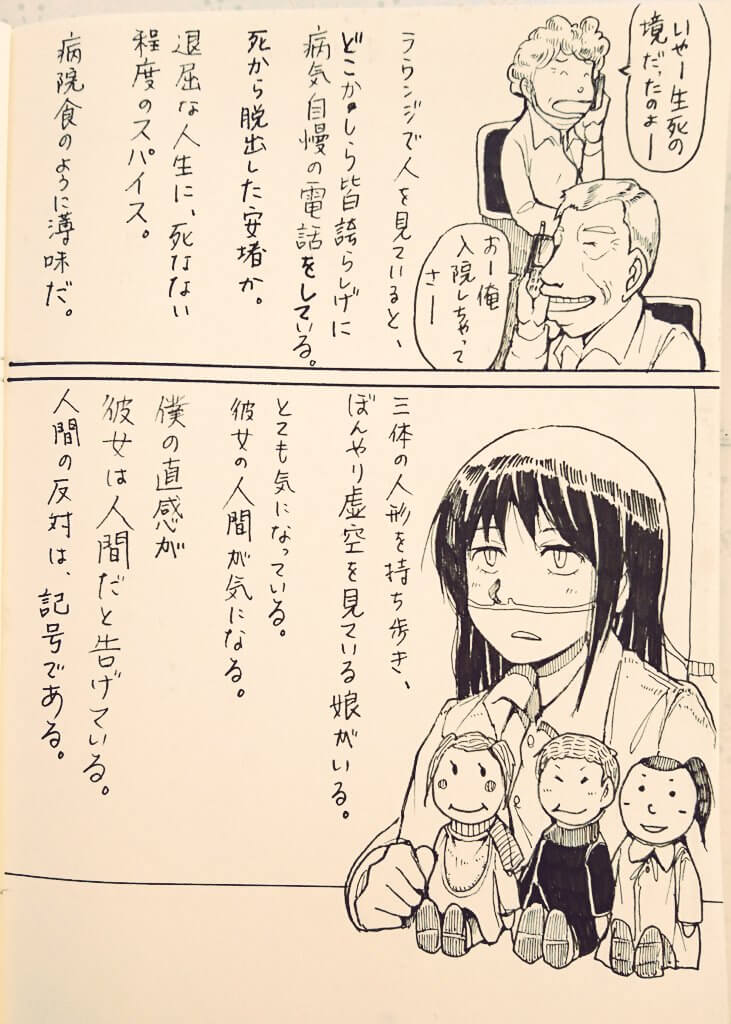 いやー生死の
境だったのよー
おー俺
入院しちゃって
さー
ラウンジで人を見ていると、
どこかしら皆誇らしげに
病気自慢の電話をしている。
死から脱出した安堵か。
退屈な人生に、死なない
程度のスパイス。
病院食のように薄味だ。
三体の人形を持ち歩き、
ぼんやり虚空を見ている娘がいる。
とても気になっている。
彼女の人間が気になる。
僕の直感が
彼女は人間だと告げている。
人間の反対は、記号である。